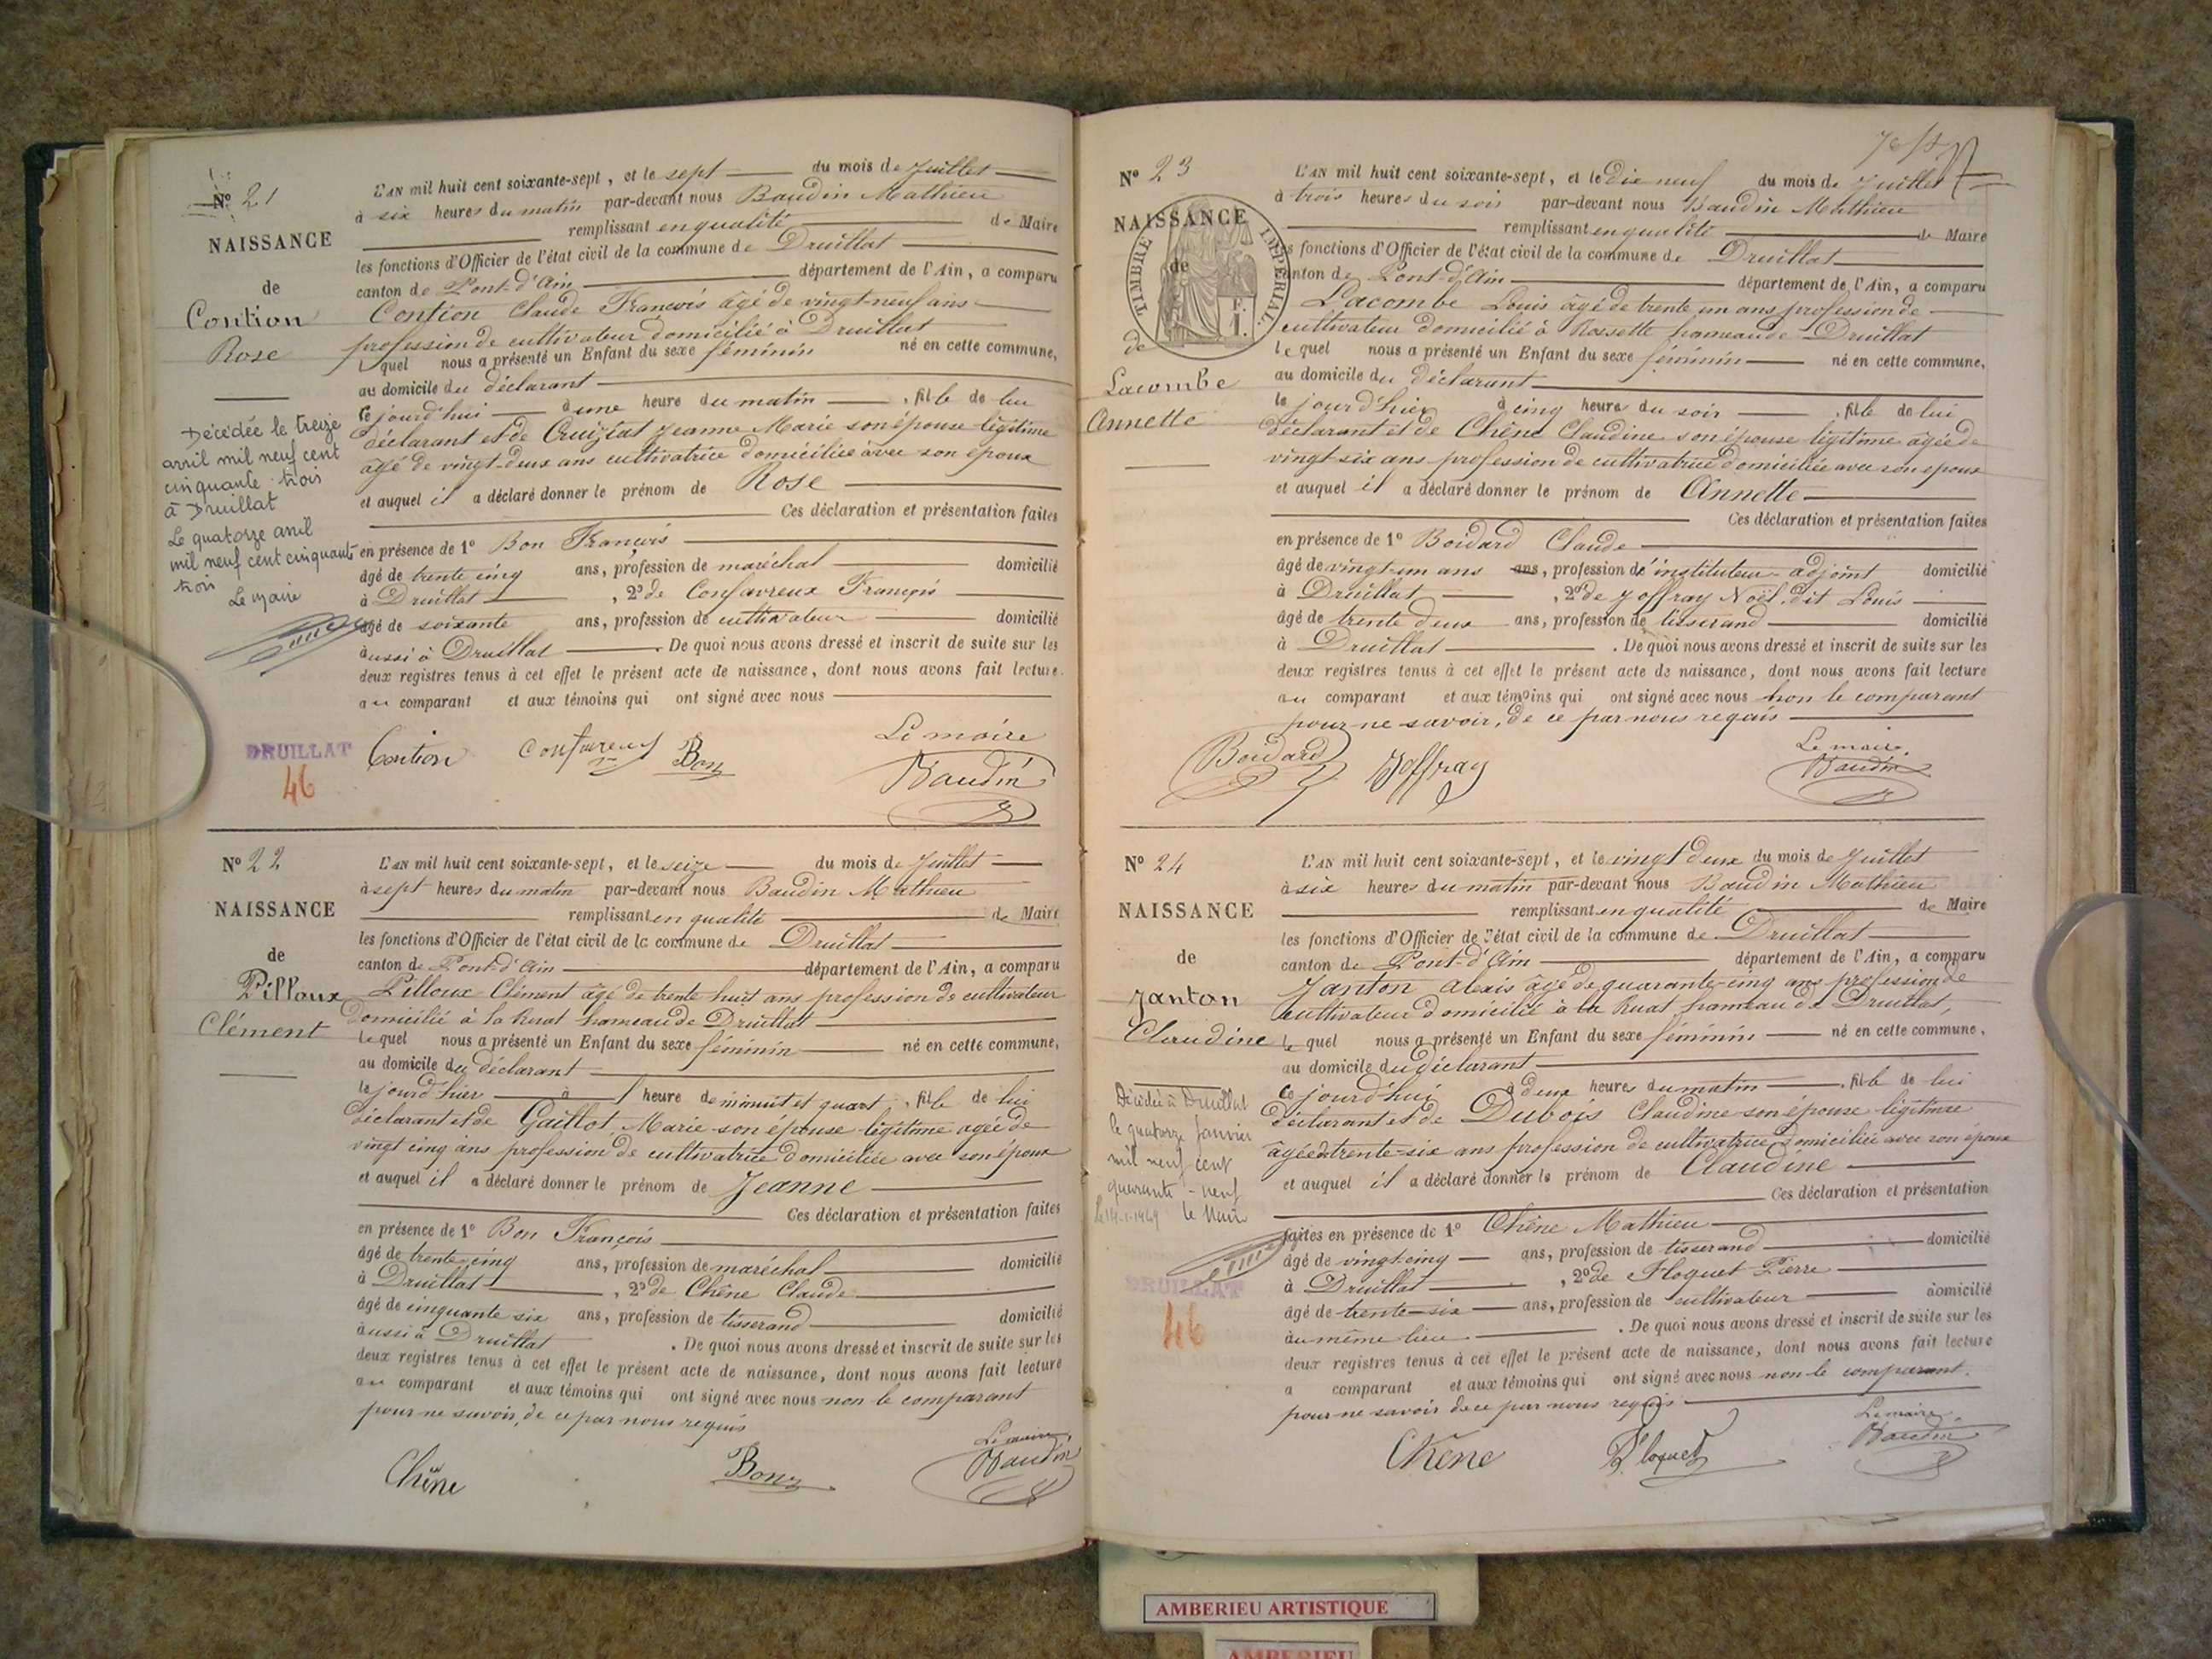 N° 21
NAISSANCE
de
Contion
Rose
Décédée le treize
avril mil neuf cent
cinquante-trois
à Druillat
Le quatorze avril
mil neuf cent cinquante
trois
Le Maire
L'AN mil huit cent soixante-sept, et le sept du mois de Juillet
à six heures du matin par-devant nous Baudin Mathieu
remplissant en qualité de Maire
les fonctions d'Officier de l'état civil de la commune de Druillat
canton de Pont-d'Ain département de l'Ain, a comparu
Contion Claude François âgé de vingt-neuf ans
profession de cultivateur domicilié à Druillat
lequel nous a présenté un Enfant du sexe féminin né en cette commune,
au domicile du déclarant
ce jourd'hui à une heure du matin, fille de lui
déclarant et de Cruiziat Jeanne Marie son épouse légitime
âgé de vingt-deux ans cultivatrice domiciliée avec son époux
et auquel il a déclaré donner le prénom de Rose
Ces déclaration et présentation faites
en présence de 1° Bon François
âgé de trente cinq ans, profession de maréchal domicilié
à Druillat, 2° de Confavreux François
âgé de soixante ans, profession de cultivateur domicilié
aussi à Druillat. De quoi nous avons dressé et inscrit de suite sur les
deux registres tenus à cet effet le présent acte de naissance, dont nous avons fait lecture
au comparant et aux témoins qui ont signé avec nous
Le maire
Contion Confavreux Bon Baudin
DRUILLAT
46
N° 22
NAISSANCE
de
Pilloux
Clément
L'AN mil huit cent soixante-sept, et le seize du mois de Juillet
à sept heures du matin par-devant nous Baudin Mathieu
remplissant en qualité de Maire
les fonctions d'Officier de l'état civil de la commune de Druillat
canton de Pont-d'Ain département de l'Ain, a comparu
Pilloux Clément âgé de trente huit ans profession de cultivateur
domicilié à la Ruat hameau de Druillat
lequel nous a présenté un Enfant du sexe féminin né en cette commune,
au domicile du déclarant
le jourd'hier à heure de minuit et quart, fille de lui
déclarant et de Gaillot Marie son épouse légitime agée de
vingt cinq ans profession de cultivatrice domiciliée avec son époux
et auquel il a déclaré donner le prénom de Jeanne
Ces déclaration et présentation faites
en présence de 1° Bon François
âgé de trente-cinq ans, profession de maréchal domicilié
à Druillat, 2° de Chêne Claude
âgé de cinquante six ans, profession de tisserand domicilié
aussi à Druillat. De quoi nous avons dressé et inscrit de suite sur les
deux registres tenus à cet effet le présent acte de naissance, dont nous avons fait lecture
au comparant et aux témoins qui ont signé avec nous non le comparant
pour ne savoir, de ce par nous requis
Le maire
Chêne Bon Baudin
N° 23
NAISSANCE
de
TIMBRE IMPERIAL
F.
1.
de
Lacombe
Annette
L'AN mil huit cent soixante-sept, et le dix neuf du mois de Juillet
à trois heures du soir par-devant nous Baudin Mathieu
remplissant en qualité de Maire
les fonctions d'Officier de l'état civil de la commune de Druillat
canton de Pont-d'Ain département de l'Ain, a comparu
Lacombe Louis âgé de trente un ans profession de
cultivateur domicilié à Rossette hameau de Druillat
lequel nous a présenté un Enfant du sexe féminin né en cette commune,
au domicile du déclarant
le jourd'hier à cinq heures du soir, fille de lui
déclarant et de Chêne Claudine son épouse légitime âgée de
vingt-six ans profession de cultivatrice domiciliée avec son époux
et auquel il a déclaré donner le prénom de Annette
Ces déclaration et présentation faites
en présence de 1° Boidard Claude
âgé de vingt-un ans ans, profession d'instituteur-adjoint domicilié
à Druillat, 2° de Joffray Noël dit Louis
âgé de trente deux ans, profession de tisserand domicilié
à Druillat. De quoi nous avons dressé et inscrit de suite sur les
deux registres tenus à cet effet le présent acte de naissance, dont nous avons fait lecture
au comparant et aux témoins qui ont signé avec nous non le comparant
pour ne savoir, de ce par nous requis
Le maire
Boidard Joffray Baudin
N° 24
NAISSANCE
de
Janton
Claudine
Décédée à Druillat
le quatorze Janvier
mil neuf cent
quarante-neuf
le 14-1-1949 le Maire
DRUILLAT
46
L'AN mil huit cent soixante-sept, et le vingt deux du mois de Juillet
à six heures du matin par-devant nous Baudin Mathieu
remplissant en qualité de Maire
les fonctions d'Officier de l'état civil de la commune de Druillat
canton de Pont-d'Ain département de l'Ain, a comparu
Janton Alexis âgé de quarante-cinq ans profession de
cultivateur domicilié à la Ruat hameau de Druillat,
lequel nous a présenté un Enfant du sexe féminin né en cette commune,
au domicile du déclarant
ce jourd'hui à deux heures du matin, fille de lui
déclarant et de Dubois Claudine son épouse légitime
âgée de trente-six ans profession de cultivatrice domiciliée avec son époux
et auquel il a déclaré donner le prénom de Claudine
Ces déclaration et présentation
faites en présence de 1° Chêne Mathieu
âgé de vingt cinq ans, profession de tisserand domicilié
à Druillat, 2° de Floquet Pierre
âgé de trente-six ans, profession de cultivateur domicilié
au même lieu. De quoi nous avons dressé et inscrit de suite sur les
deux registres tenus à cet effet le présent acte de naissance, dont nous avons fait lecture
a comparant et aux témoins qui ont signé avec nous non le comparant
pour ne savoir de ce par nous requis
Le maire
Chêne Floquet Baudin
AMBERIEU ARTISTIQUE
AMBERIEU